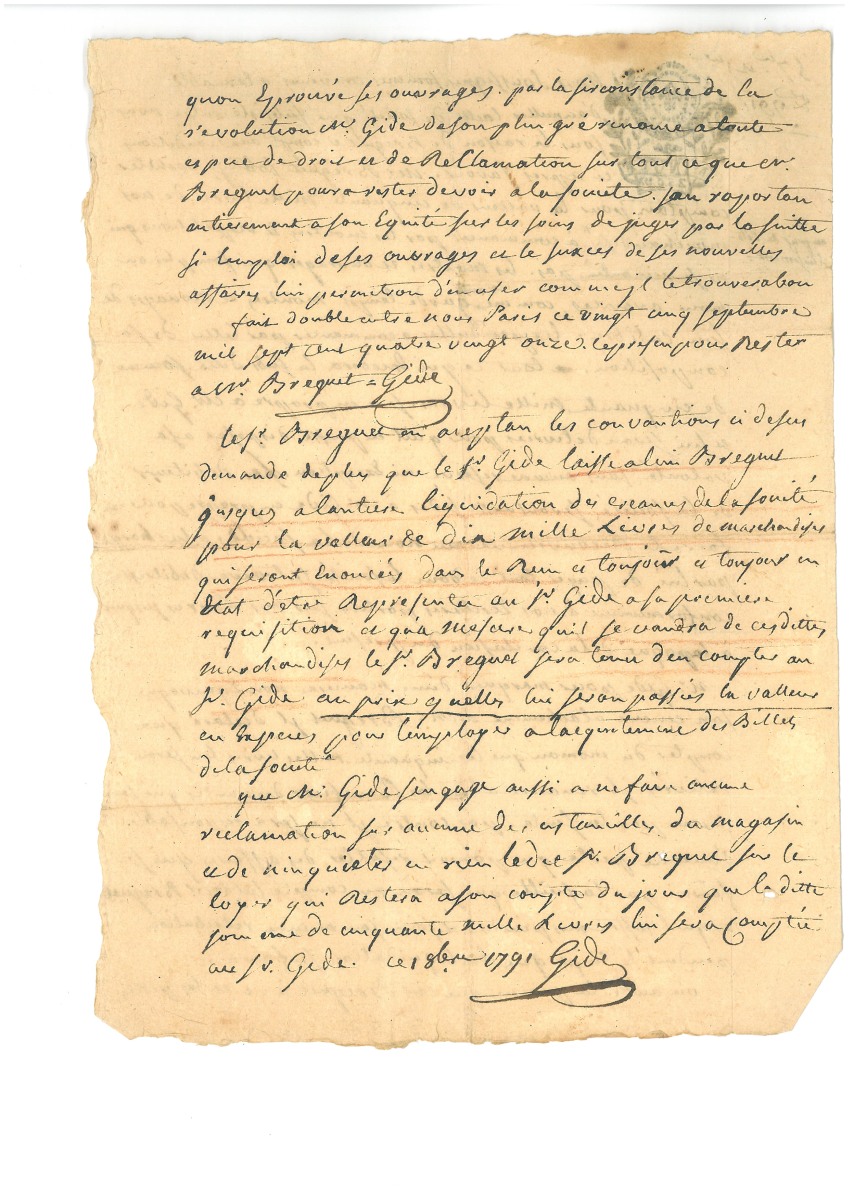 quon Eprouvé ses ouvrages. par la sirconstance de la
révolution Mr. Gide de son plin gré renonce a toute
espece de droit et de Reclamation sur tout ce que Mr.
Breguet poura rester devoir a la société. san raportan
entierement a son Equité sur les soins de juger par la suitte
si lemploi de ses ouvrages et le suxces de ses nouvelles
affaires lui permetron d'en user comme jl le trouvera bon
fait double entre nous Paris ce vingt cinq septembre
mil sept cent quatre vingt onze. le presen pour Rester
a Mr. Breguet = Gide
le Sr. Breguet en axeptan les convantions ci desus
demande de plus que le Sr. Gide laisse a luin Breguet
jusques a lantiere liquidation des creances de la société
pour la valleur de dix mille Livres de marchandises
qui seront Enoncées dans le Recu et toujour et toujour en
Etat d'etre Representée au Sr. Gide a sa premiere
requisition et qu'a Mesure qu'il se vandra de ces dittes
marchandises le Sr. Breguet sera tenu den compter au
Sr. Gide au prix quelles lui seron passées la valleur
en Espèces pour lemployer a laquitement des Billets
de la société
que Mr. Gide sengage aussi a ne faire aucune
reclamation sur aucune des ustancilles du magasin
et de ninquieter en rien le dit Sr. Breguet sur le
loyer qui Restera a son compte du jour que la ditte
somme de cinquante mille Livres lui sera Comptée
au Sr. Gide. ce 1 8bre 1791 Gide